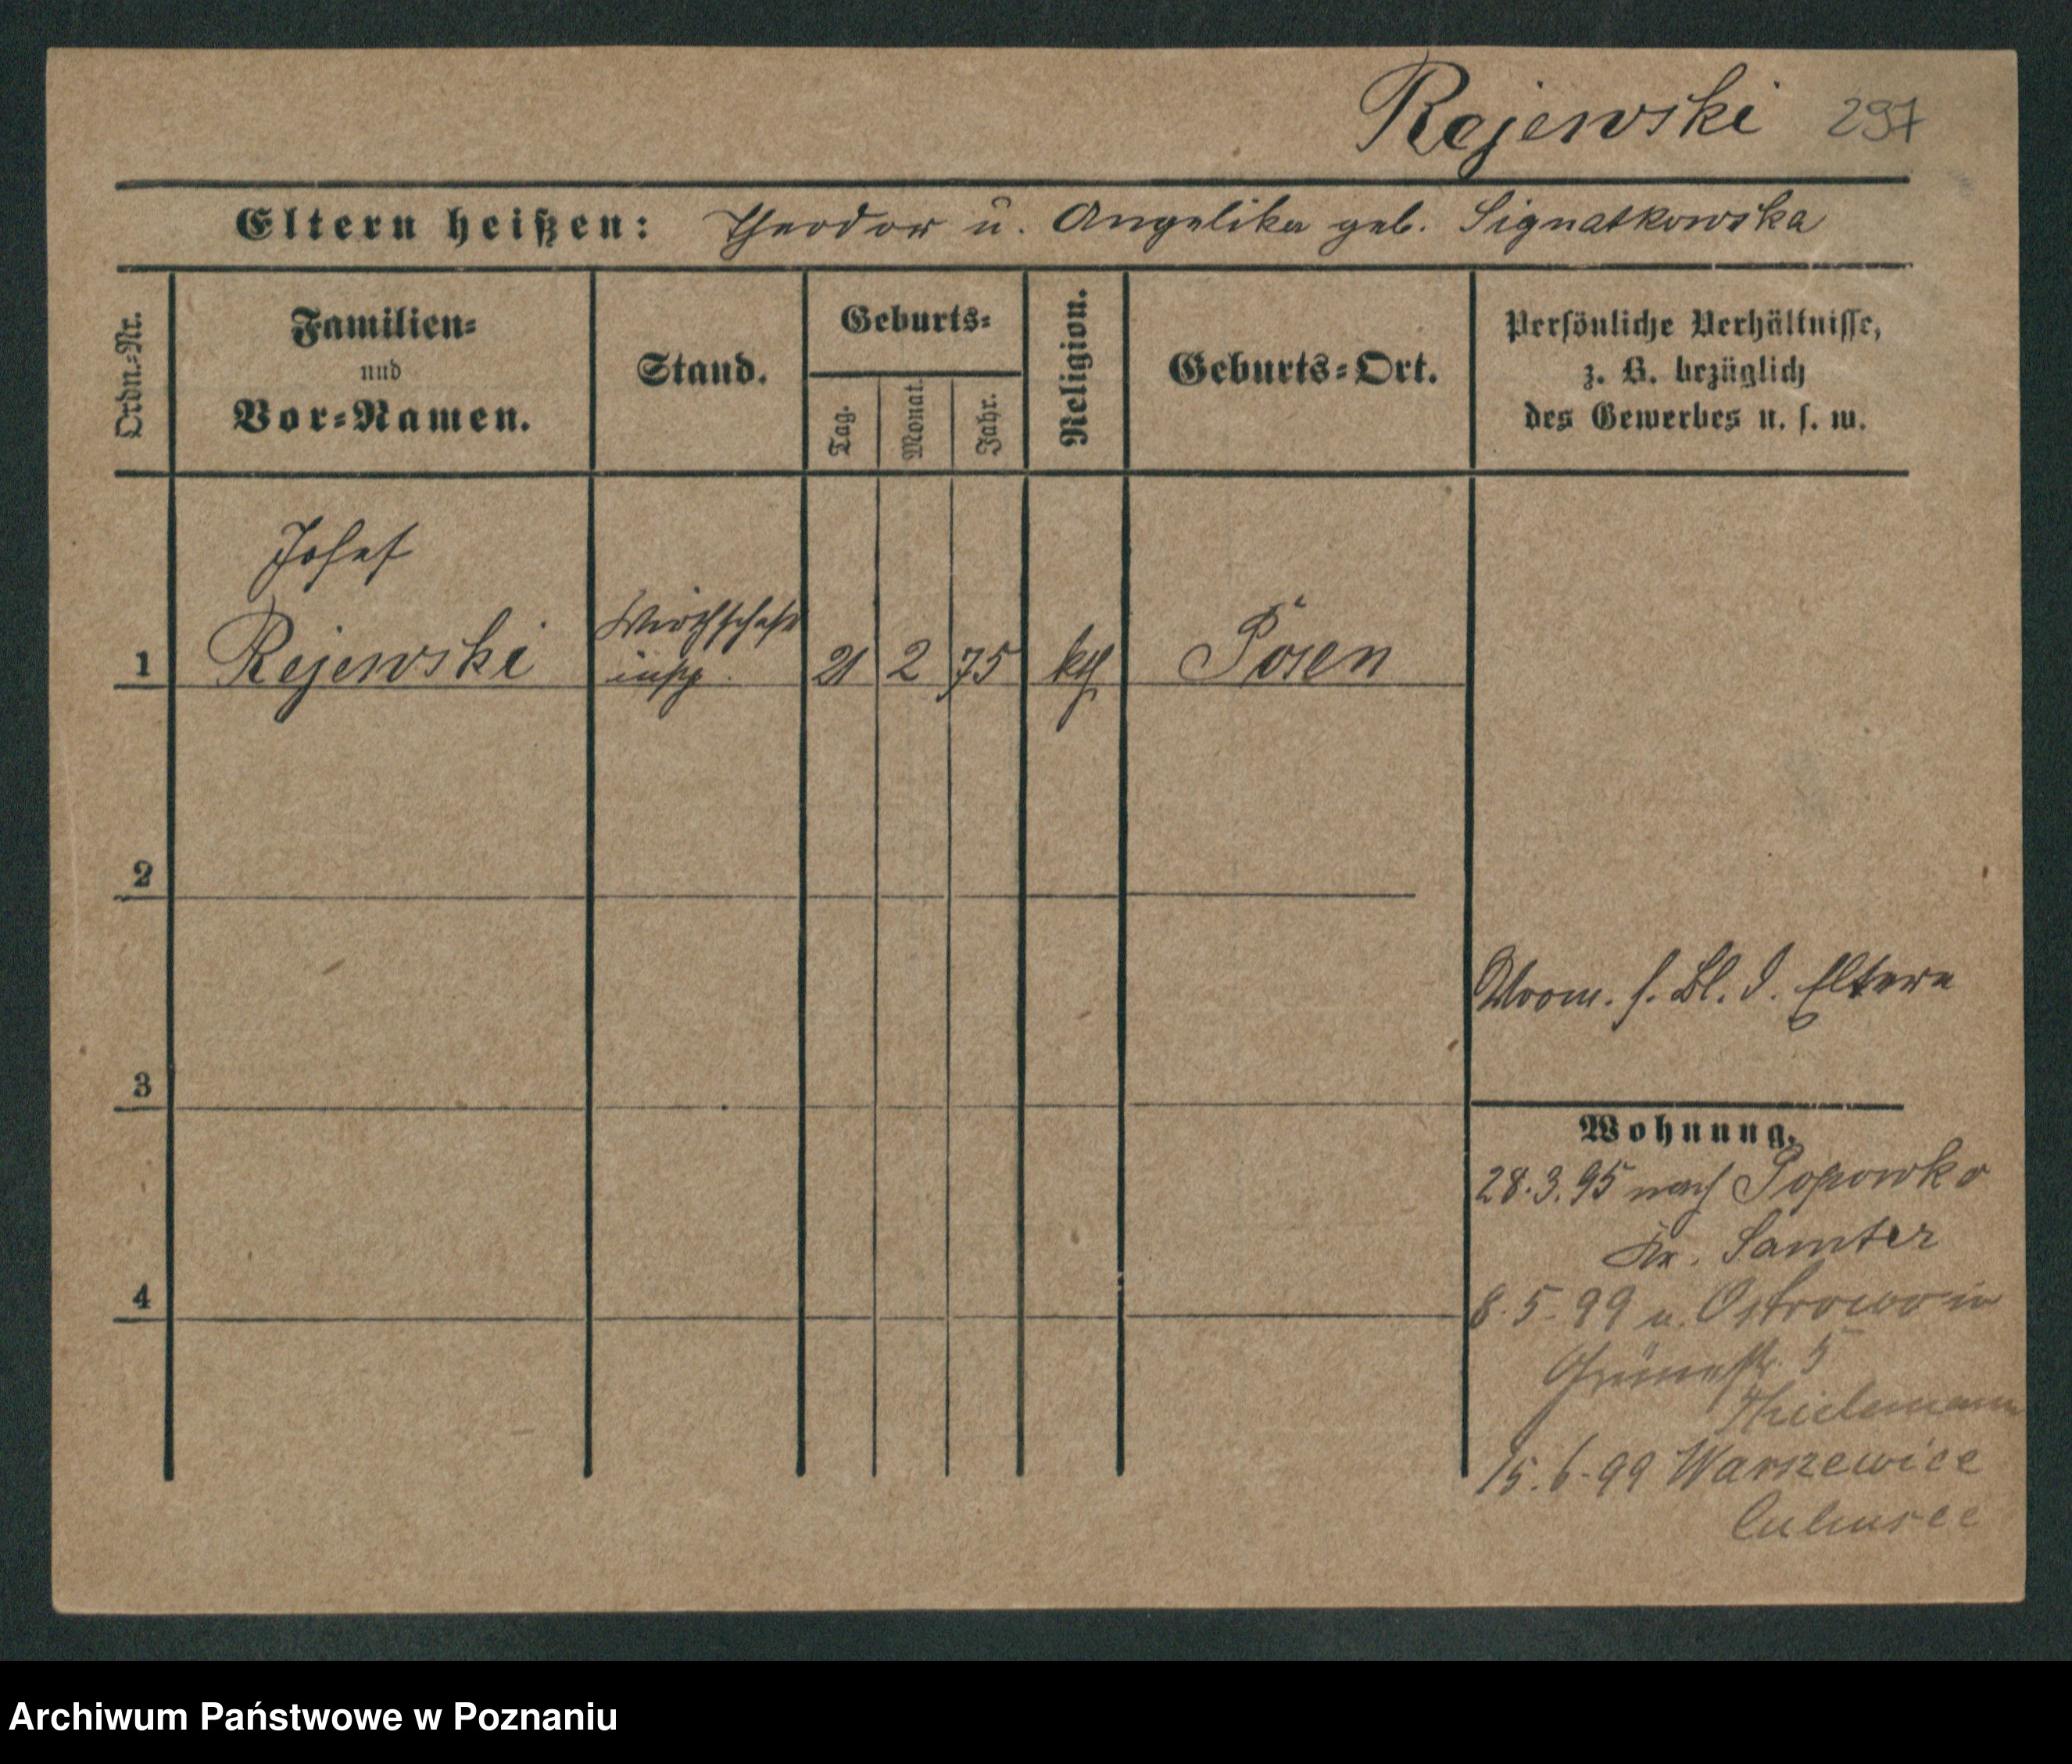 Rejewski 297
Eltern heißen: Theodor u. Angelika geb. Signatkowska
Ordn.=Nr.
Familien=
und
Vor=Namen.
Stand.
Geburts=
Tag.
Monat.
Jahr.
Religion.
Geburts=Ort.
Persönliche Verhältnisse,
z. B. bezüglich
des Gewerbes u. s. w.
Josef
1 Rejewski
Wirthschafts
insp.
21 2 75 kth Posen
2
s. Bl. d. Eltern
3
Wohnung.
28.3.95 nach Popowko
Kr. Samter
4
8.5.99 n. Ostrowo in
Grünestr. 5
Thielemann
15.6.99 Warszewice
Culmsee
Archiwum Państwowe w Poznaniu